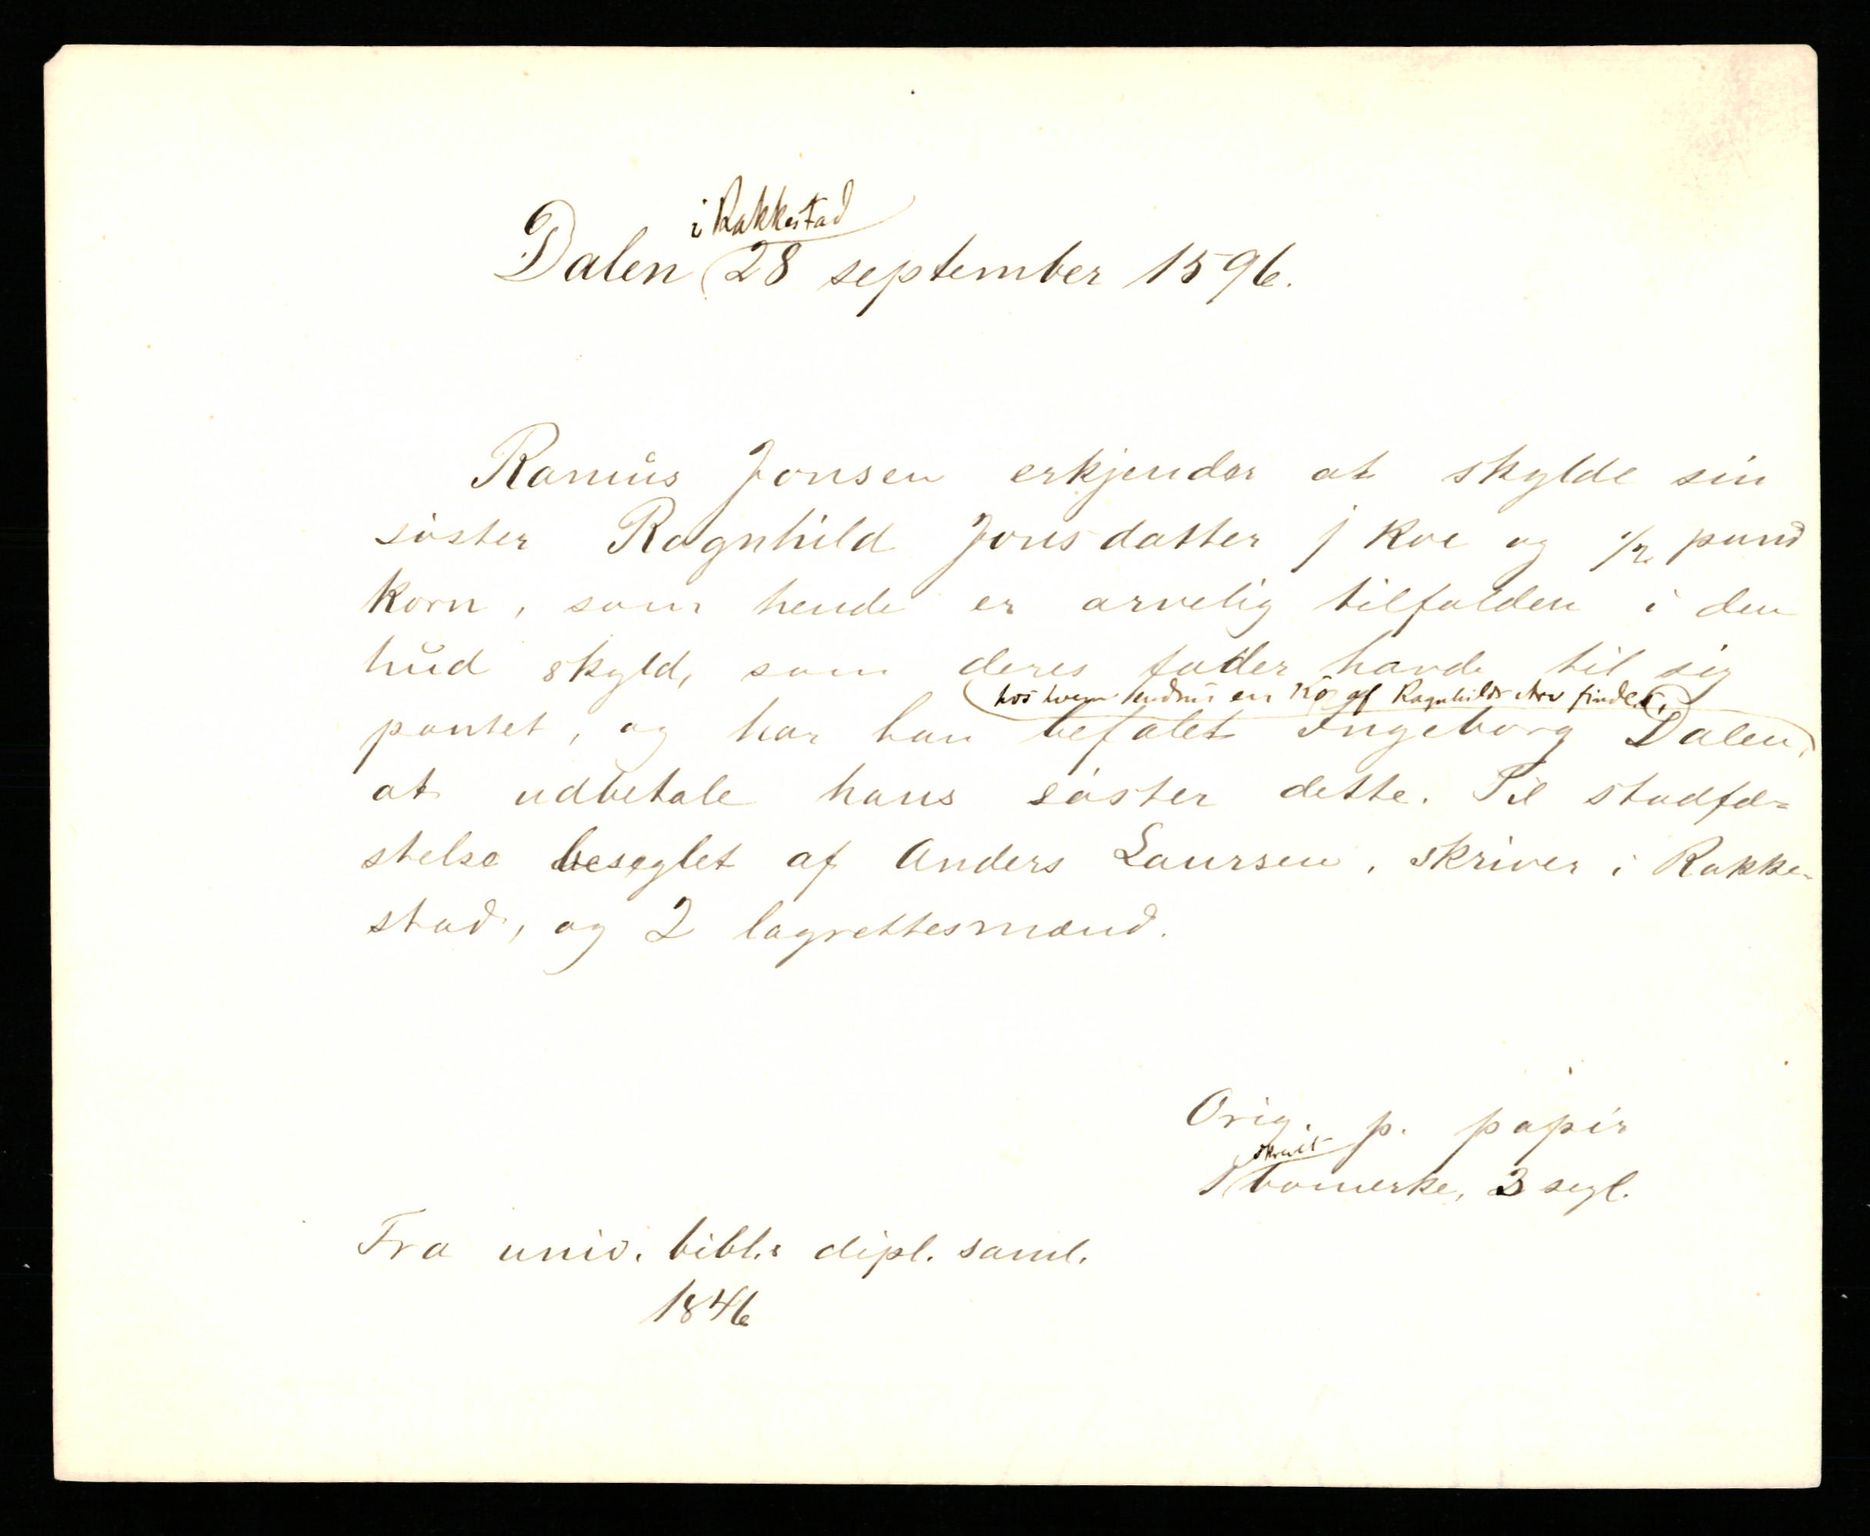 i Rakkestad
Dalen 28 september 1596.
Ramus Jonsen erkjender at skylde sin
søster Ragnhild Jonsdatter j koe og 1/2 pund
korn, som hende er arvelig tilfalden i den
hud skyld, som deres fader havde til sig
hos hvem endnu en Ko af Ragnhilds Arv findes,
pantet, og har han befalet Ingeborg Dalen,
at udbetale hans søster dette. Til stadfæ=
stelse beseglet af Anders Laursen, skriver i Rakke-
stad, og 2 lagrettesmænd.
Orig. p. papir
bomerke, 3 segl.
Fra univ. bibl.s dipl. saml.
1846